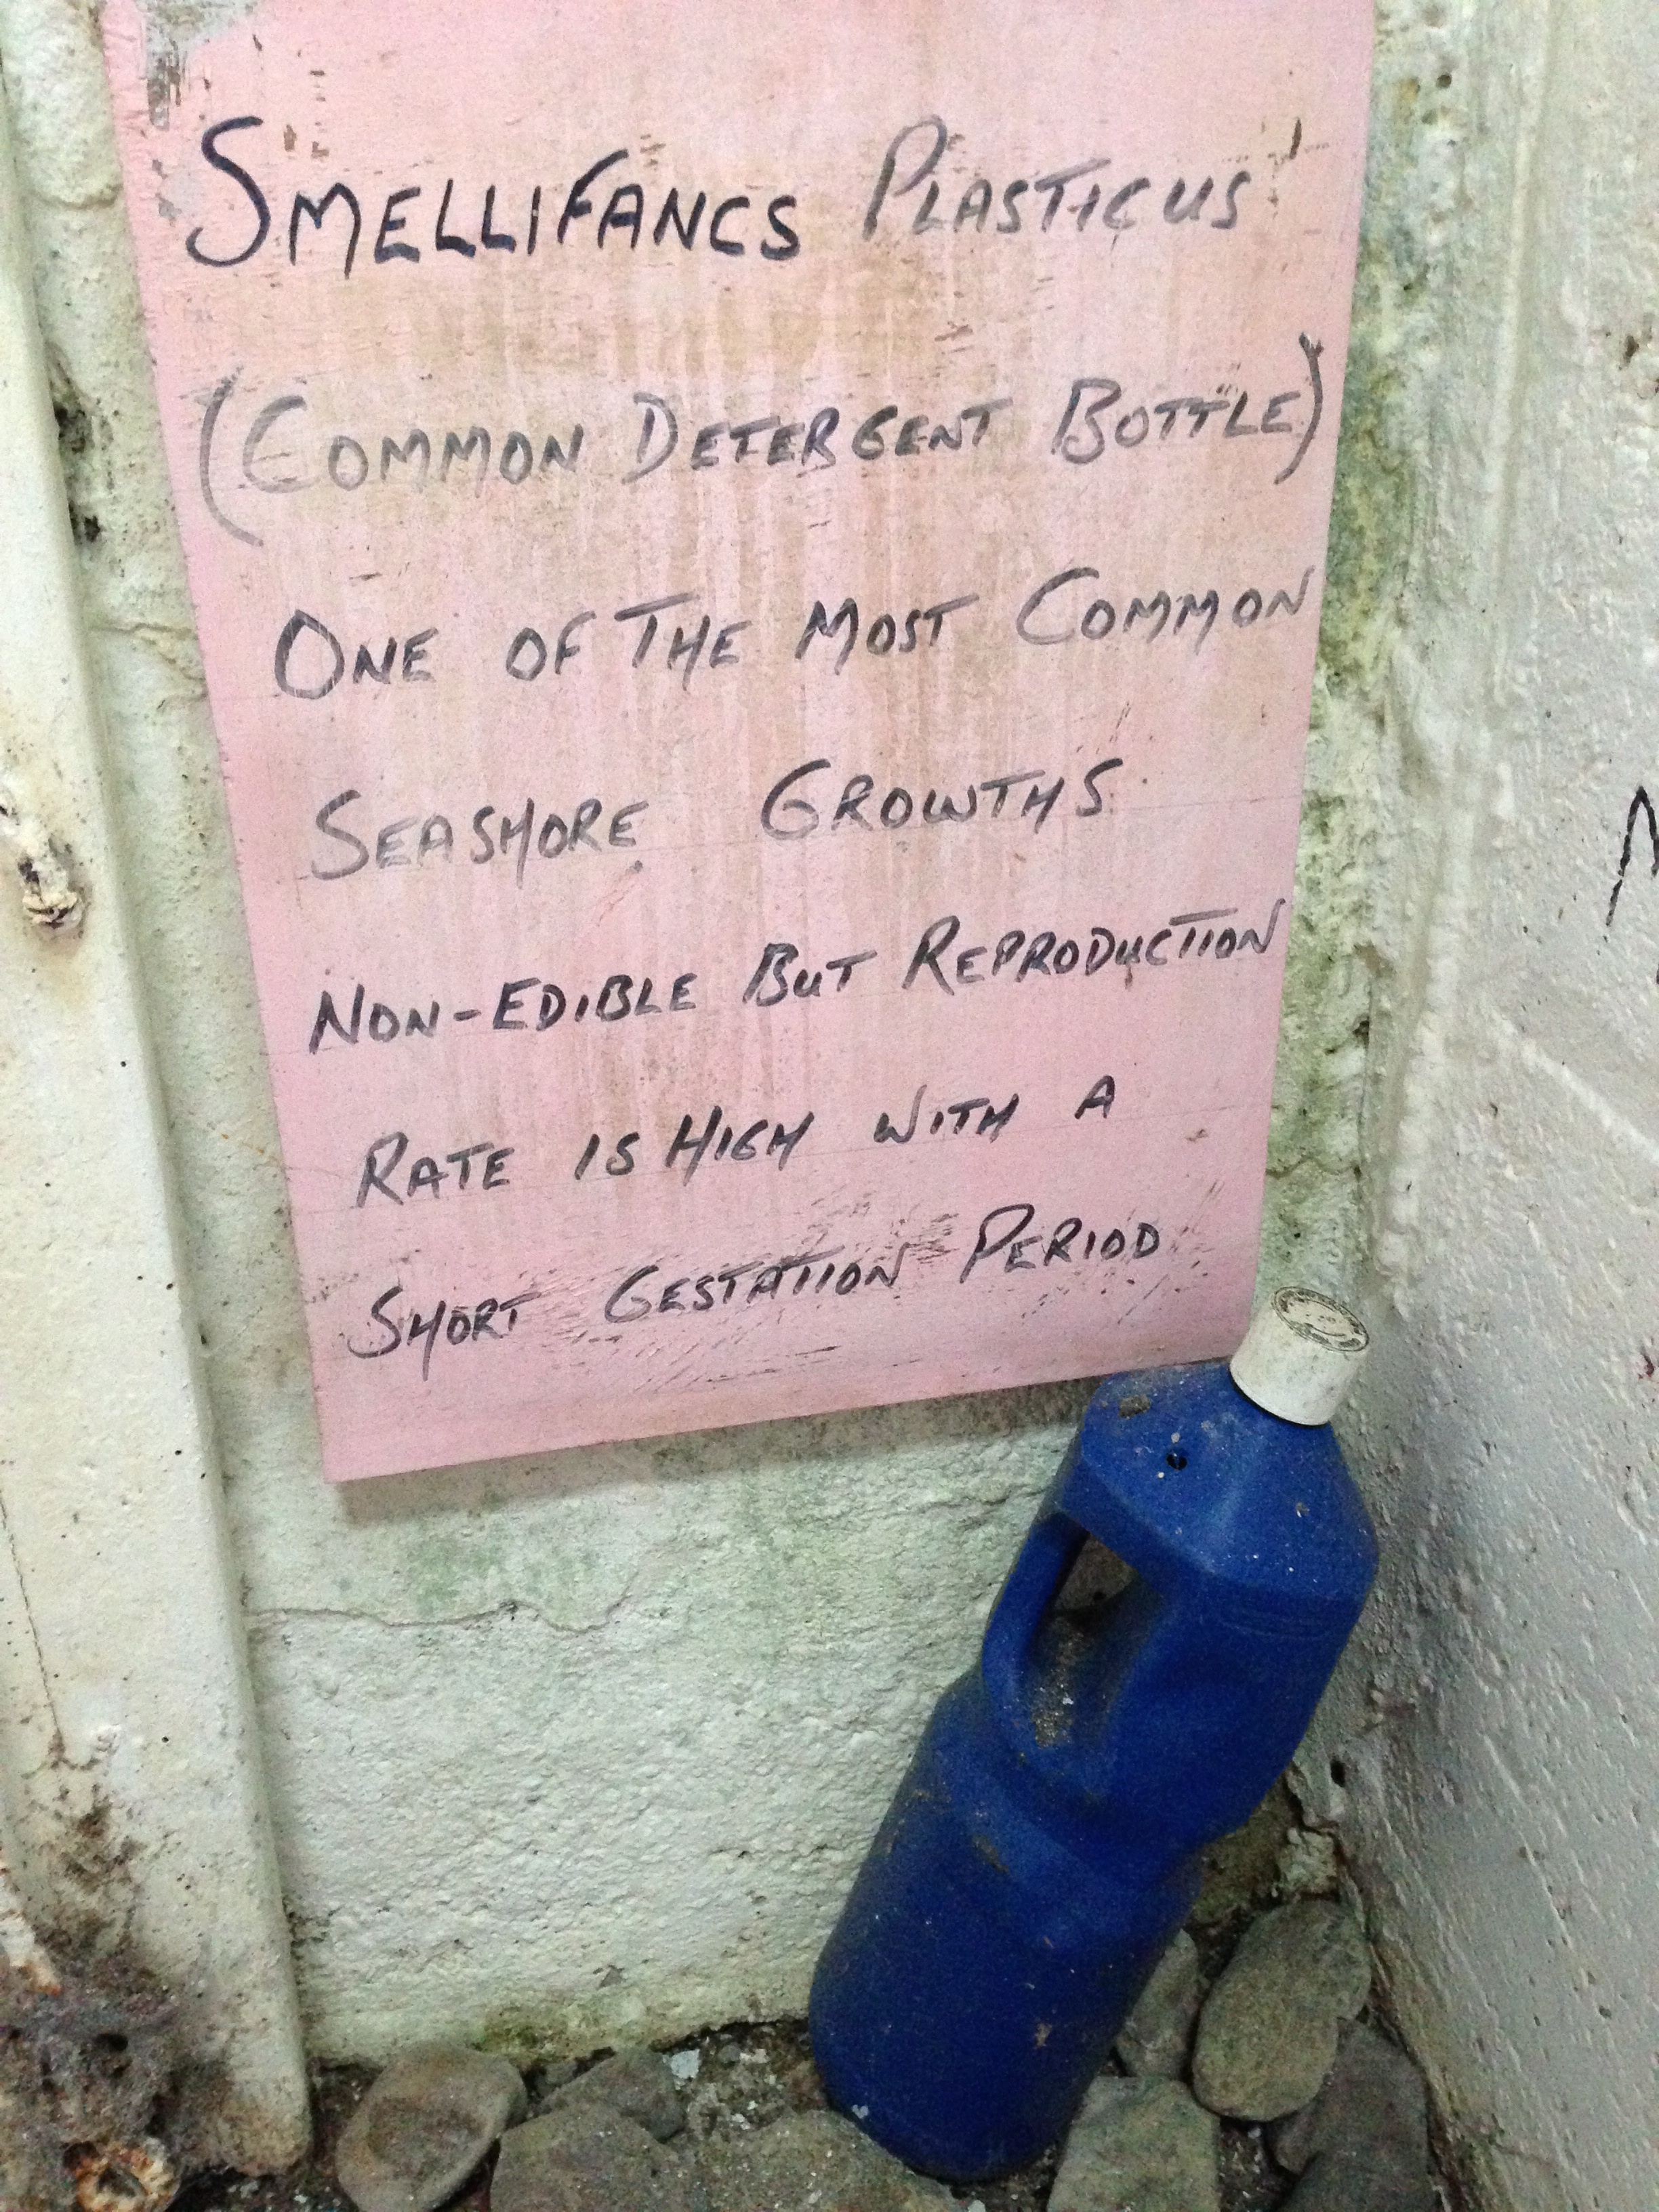 SMELLIFANCS PLASTICUS
(COMMON DETERGENT BOTTLE)
ONE OF THE MOST COMMON
SEASHORE GROWTHS
NON-EDIBLE BUT REPRODUCTION
RATE IS HIGH WITH A
SHORT GESTATION PERIOD